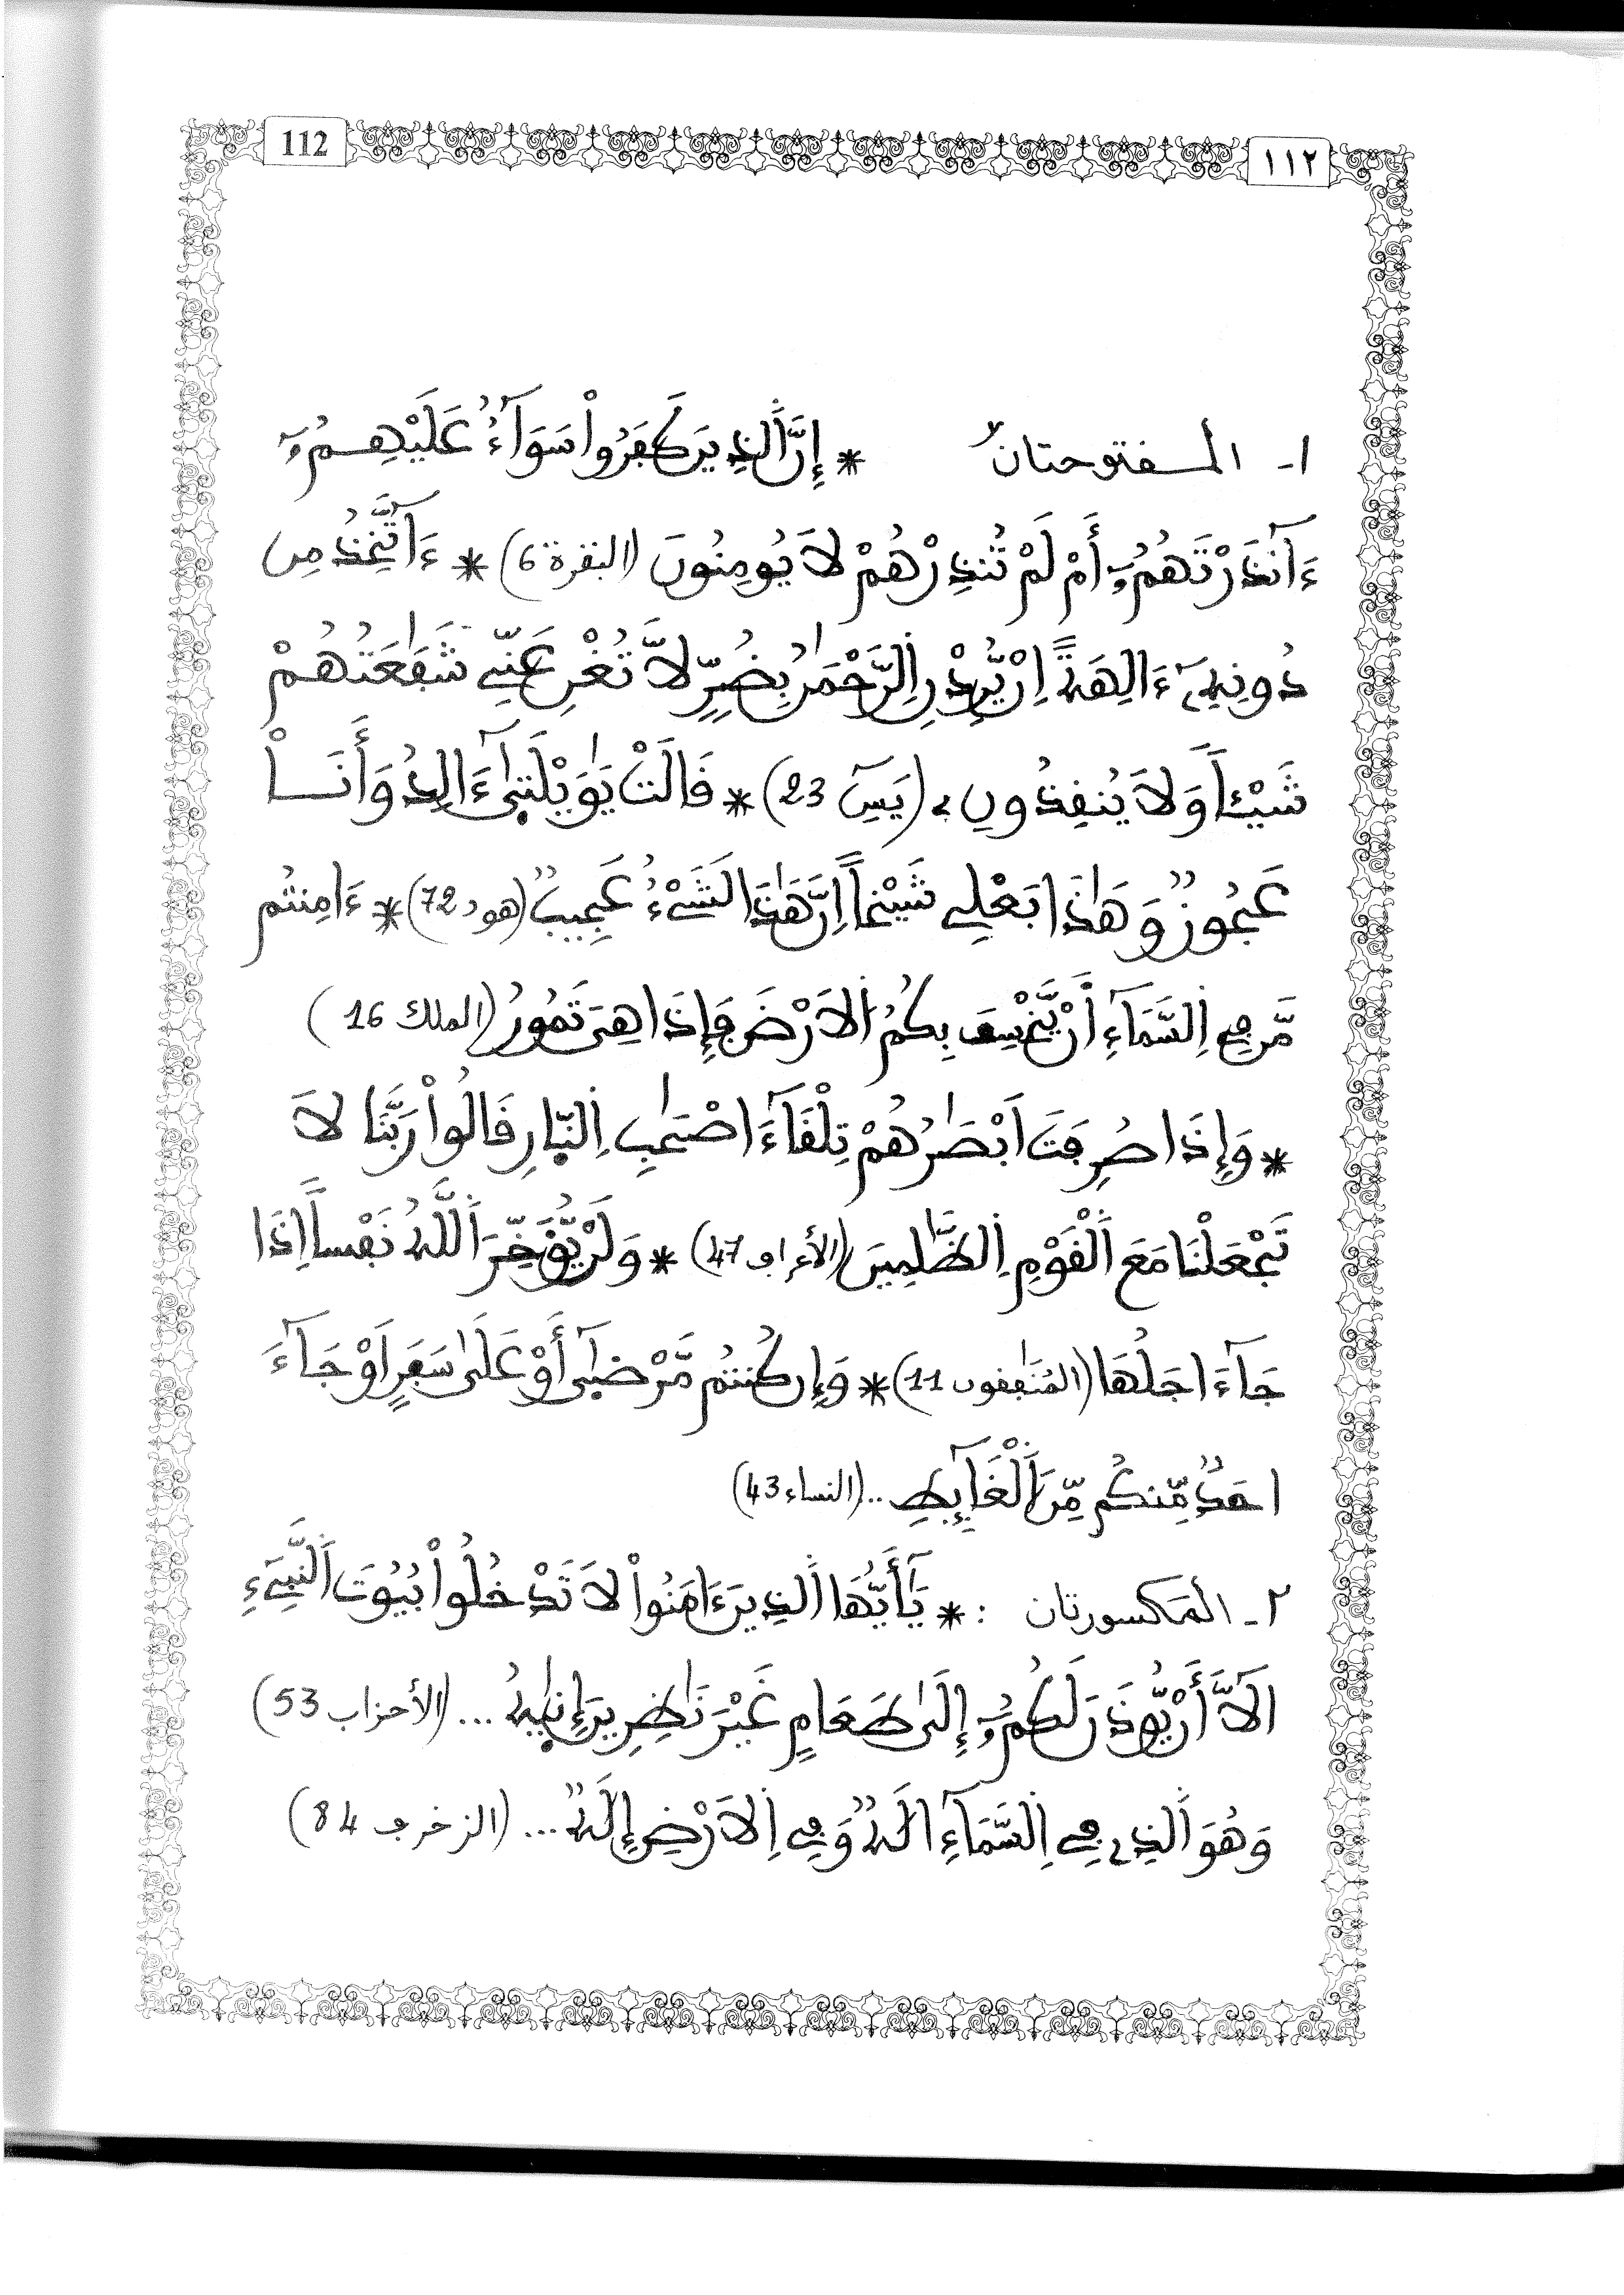 112
١١٢
١- المفتوحتان * إِنَّ ٱلذِينَ كَفَرُواْ سَوَآءٌ عَلَيْهِمُۥٓ
ءَآنذَرْتَهُمُۥٓ أَمْ لَمْ تُنذِرْهُمْ لَا يُومِنُونَ (البقرة 6) * ءَآتَّخِذُ مِن
دُونِهِۦٓ ءَالِهَةً اِنْ يُّرِدْنِ اِ۬لرَّحْمَٰنُ بِضُرٍّ لَّا تُغْنِ عَنِّے شَفَٰعَتُهُمْ
شَيْـٔاً وَلَا يُنقِذُونِۦ (يَسٓ 23) * قَالَتْ يَٰوَيْلَتَىٰٓ ءَآلِدُ وَأَنَا۠
عَجُوزٌ وَهَٰذَا بَعْلِے شَيْخاًۖ اِنَّ هَٰذَا لَشَےْءٌ عَجِيبٌ (هود 72) * ءَامِنتُم
مَّن فِے اِ۬لسَّمَآءِ اَ۬نْ يَّخْسِفَ بِكُمُ اُ۬لَارْضَ فَإِذَا هِىَ تَمُورُ (الملك 16)
* وَإِذَا صُرِفَتَ اَبْصَٰرُهُمْ تِلْقَآءَ اصْحَٰبِ اِ۬لنّ۪ارِ قَالُواْ رَبَّنَا لَا
تَجْعَلْنَا مَعَ اَ۬لْقَوْمِ اِ۬لظَّٰلِمِينَ (الأعراف 47) * وَلَنْ يُّؤَخِّرَ اَ۬للَّهُ نَفْساً اِذَا
جَآءَ اجَلُهَا (المُنَٰفِقون 11) * وَإِن كُنتُم مَّرْض۪ىٰٓ أَوْ عَلَىٰ سَفَرٍ اَوْ جَآءَ
احَدٌ مِّنكُم مِّنَ اَ۬لْغَآئِطِ .. (النساء 43)
٢- المَكسورتان : * يَٰٓأَيُّهَا اَ۬لذِينَ ءَامَنُواْ لَا تَدْخُلُواْ بُيُوتَ اَ۬لنَّبِےٓءِ
الَّآ أَنْ يُّوذَنَ لَكُمُۥٓ إِلَىٰ طَعَامٍ غَيْرَ نَٰظِرِينَ إِن۪يٰهُ ... (الأحزاب 53)
وَهُوَ اَ۬لذِے فِے اِ۬لسَّمَآءِ الَٰهٌ وَفِے اِ۬لَارْضِ إِلَٰهٌ ... (الزخرف 84)